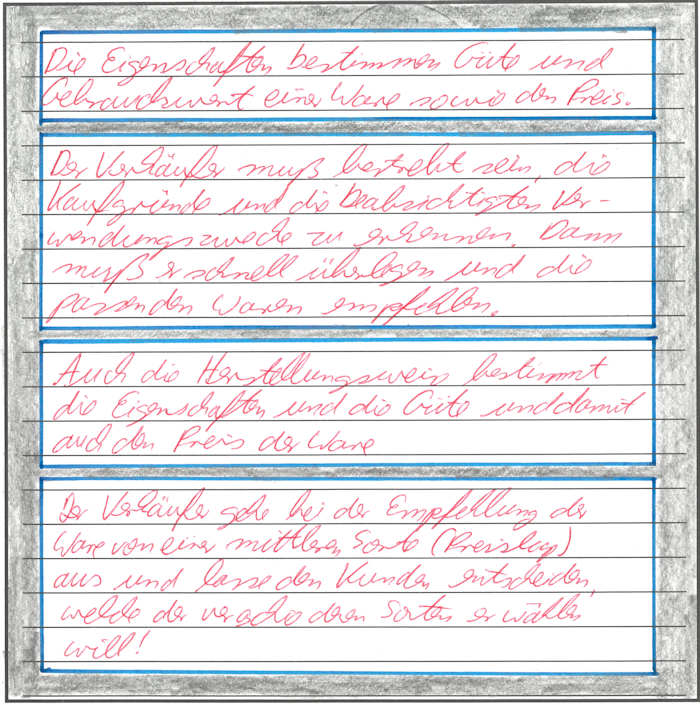 Die Eigenschaften bestimmen Güte und
Gebrauchswert einer Ware sowie den Preis.
Der Verkäufer muß bestrebt sein, die
Kaufgründe und die beabsichtigten Ver-
wendungszwecke zu erkennen. Dann
muß er schnell überlegen und die
passenden Waren empfehlen.
Auch die Herstellungsweise bestimmt
die Eigenschaften und die Güte und damit
auch den Preis der Ware
Der Verkäufer gehe bei der Empfehlung der
Ware von einer mittleren Sorte (Preislage)
aus und lasse den Kunden entscheiden,
welche der verschiedenen Sorten er wählen
will!